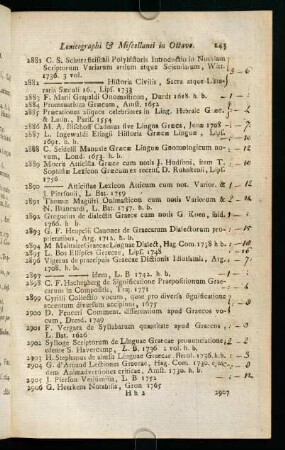 Lexicographi & Miscellanei in Octavo. 245
2881 C. S. Schurzfleischii Polyhistoris Introductio in Notitiam
Scriptorum Variarum artium atque Scientiarum, Witt.
1736. 3 vol.
2882 —— Historia Civilis, Sacra atque Litte-
raria Sæculi 16. Lips. 1733
2883 F. Marii Grapaldi Onomasticon, Dardi 1618. h. b.
2884 Promenatium Græcum, Amst. 1652
2885 Præcationes aliquot celebriores in Ling. Hebraic Græc.
& Latin. Paris. 1554
2886 M. A. Bischoff Cadmus sive Lingua Græca, Jena 1708
2887 L. Ingewaldi Elingii Historia Græcæ Linguæ, Lips.
1691. h. b.
2888 C. Seidelii Manuale Græcæ Linguæ Gnomologicum no-
vum, Lond. 1653. h. b.
2889 Moeris Atticista Græce cum notis J. Hudsoni, item T.
Sophistæ Lexicon Græcum ex recens. D. Ruhnkenii, Lips
1756
2890 —— Atticistæ Lexicon Atticum cum not. Varior. &
J. Piersonii, L. Bat. 1759
2891 Thomæ Magistri Onomasticon cum notis Variorum &
N. Blancardi, L. Bat. 1757. h. b.
2892 Gregorius de dialectis Græcæ cum notis G. Koen, ibid.
1766. h. b.
2893 G. F. Heupelii Canones de Græcarum Dialectorum pro-
prietatibus, Arg. 1712. h. b.
2894 M Maittaire Græcæ Linguæ Dialect, Hag Com. 1738 h. b.
2895 L. Bos Ellipses Græcæ, Lips. 1748
2896 Vigerus de præcipuis Græcæ Dictionis Idiotismis, Arg.
1708. h. b.
2897 —— Idem, L. B 1742. h. b.
2898 C. F. Hachenberg de Significatione Præpositionum Græ-
carum in Compositis, Traj. 1771
2899 Cyrilli Collectio vocum, quæ pro diversa significatione
accentum diversum accipiunt, 1677
2900 D. Peuceri Comment. differentium apud Græcos vo-
cum, Dresd. 1749
2901 F. Vergara de Syllabarum quantitate apud Græcos,
L. Bat. 1606
2902 Sylloge Scriptorum de Linguæ Græcæ pronunciatione,
edente S. Havercamp, L. B. 1736. 2 vol. h. b.
2903 H. Stephanus de abusu Linguæ Græcæ, Berol. 1736. h. b.
2904 G. d'Arnaud Lectiones Græcæ, Hag. Com. 1730. ejus-
dem Animadversiones criticæ, Amst. 1730. h. b.
2905 J. Pierson Verisimilia, L B 1752
2906 G. Heurkens Notabilia, Gron 1765
H h 2 2907